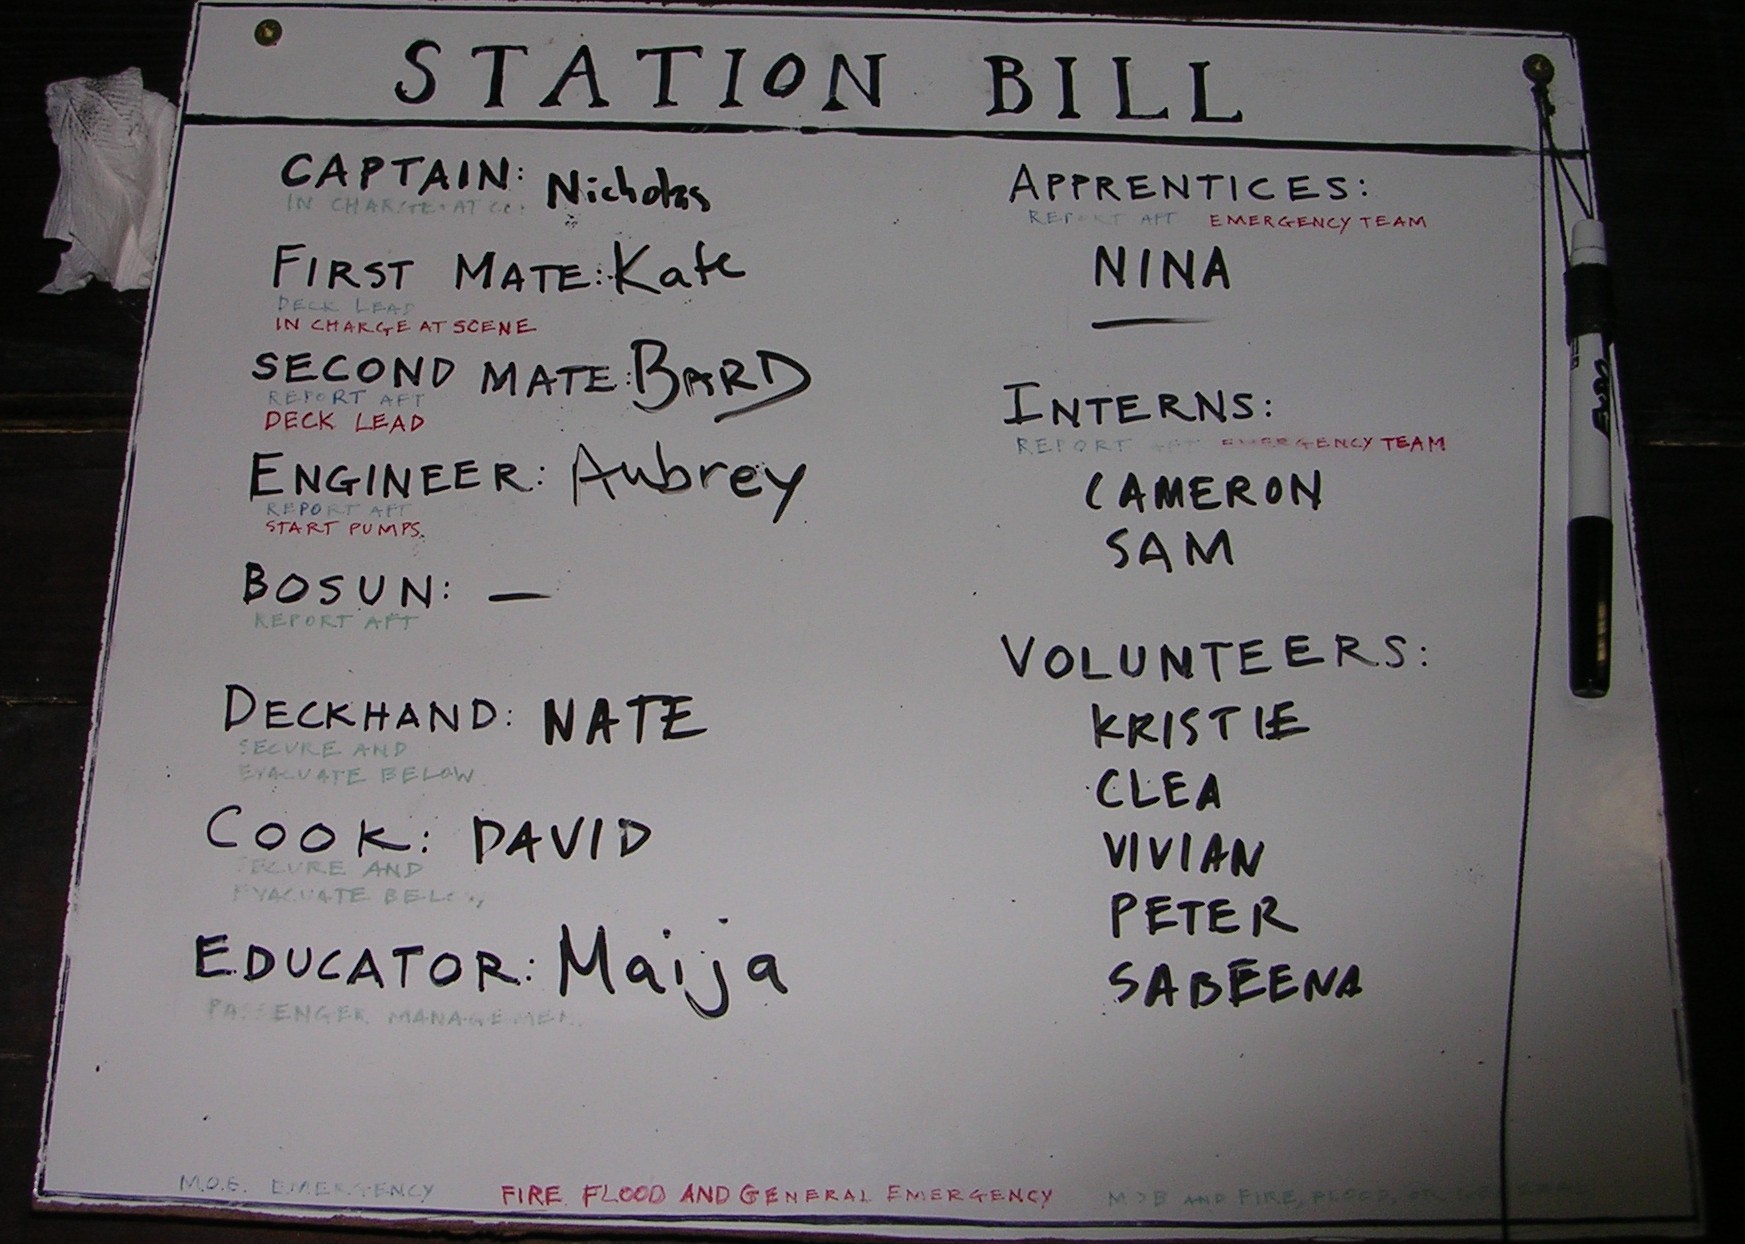 STATION BILL
CAPTAIN: Nicholas
IN CHARGE AT
FIRST MATE: Kate
DECK LEAD
IN CHARGE AT SCENE
SECOND MATE: BARD
REPORT AFT
DECK LEAD
ENGINEER: Aubrey
REPORT AFT
START PUMPS.
BOSUN: —
REPORT AFT
DECKHAND: NATE
SECURE AND
EVACUATE BELOW
COOK: DAVID
SECURE AND
EVACUATE BELOW
EDUCATOR: Maija
PASSENGER MANAGEMEN
APPRENTICES:
REPORT AFT EMERGENCY TEAM
NINA
—
INTERNS:
REPORT AFT EMERGENCY TEAM
CAMERON
SAM
VOLUNTEERS:
KRISTIE
CLEA
VIVIAN
PETER
SABEENA
EMERGENCY
FIRE FLOOD AND GENERAL EMERGENCY
MOB AND FIRE, FLOOD, OR GENERAL
EXPO